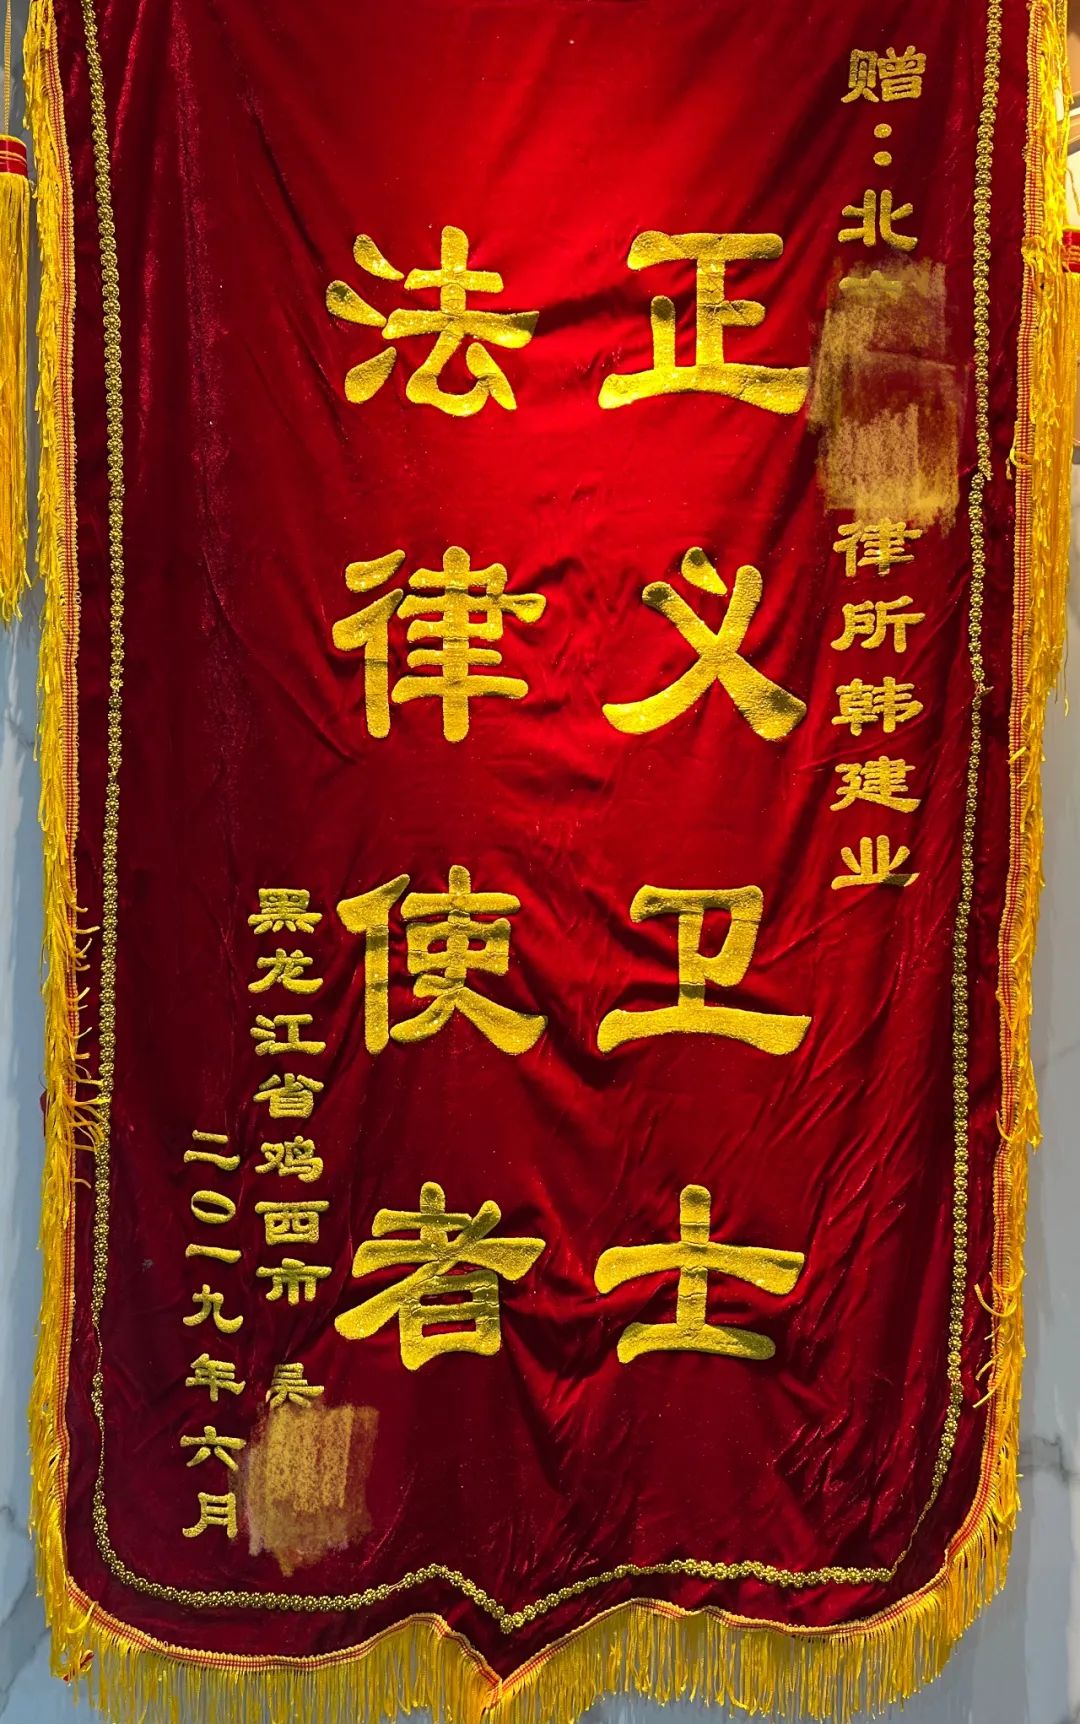 赠：北
律所韩建业
正义卫士
法律使者
黑龙江省鸡西市 吴
二〇一九年六月